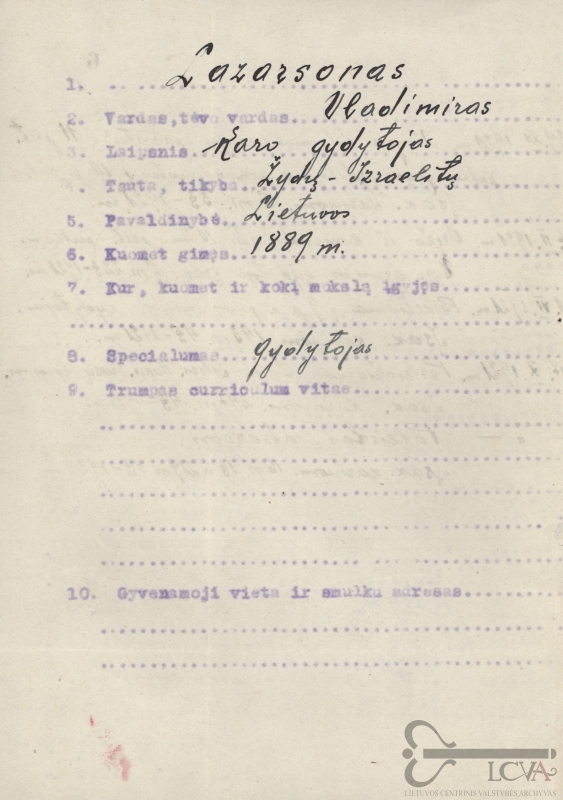 1. Lazarsonas
2. Vardas, tėvo vardas... Vladimiras
3. Laipsnis Karo gydytojas
. Tauta, tikyba Žydų - Izraelitų
5. Pavaldinybė.. Lietuvos
6. Kuomet gimęs.. 1889 m.
7. Kur, kuomet ir kokį mokslą įgyjęs
8. Specialumas.. gydytojas
9. Trumpas curriculum vitae
10. Gyvenamoji vieta ir smulku adresas
LCVA
LIETUVOS CENTRINIS VALSTYBĖS ARCHYVAS